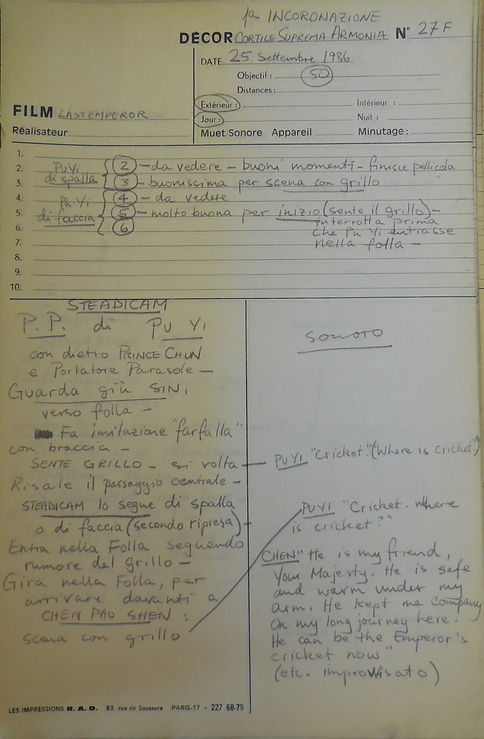 1ª INCORONAZIONE
DÉCOR CORTILE SUPREMA ARMONIA N° 27 F
DATE 25 Settembre 1986
Objectif : 50
Distances :
Extérieur : Intérieur :
FILM LAST EMPEROR
Jour : Nuit :
Réalisateur Muet/Sonore Appareil Minutage :
1.
2. PU YI di spalla 2 - da vedere - buoni momenti - finisce pellicola
3. 3 - buonissima per scena con grillo
4. PU YI di faccia 4 - da vedere
5. 5 - molto buona per inizio (sente il grillo) -
6. 6 interrotta prima
che PU YI entrasse
7. nella folla -
8.
9.
10.
STEADICAM
P.P. di PU YI
con dietro PRINCE CHUN
e Portatore Parasole -
Guarda giù SIN,
verso folla -
Fa imitazione "farfalla"
con braccia -
SENTE GRILLO - si volta -
Risale il passaggio centrale -
STEADICAM lo segue di spalla
o di faccia (secondo ripresa) -
Entra nella Folla seguendo
rumore del grillo -
Gira nella Folla, per
arrivare davanti a
CHEN PAO SHEN :
scena con grillo
sonoro
PU YI "Cricket." (Where is Cricket?)
PU YI "Cricket. Where
is cricket?"
CHEN "He is my friend,
Your Majesty. He is safe
and warm under my
arm. He kept me company
on my long journey here.
He can be the Emperor's
cricket now"
(etc. improvvisato)
LES IMPRESSIONS R. A. D. 83, rue de Saussure PARIS-17 - 227 68-79